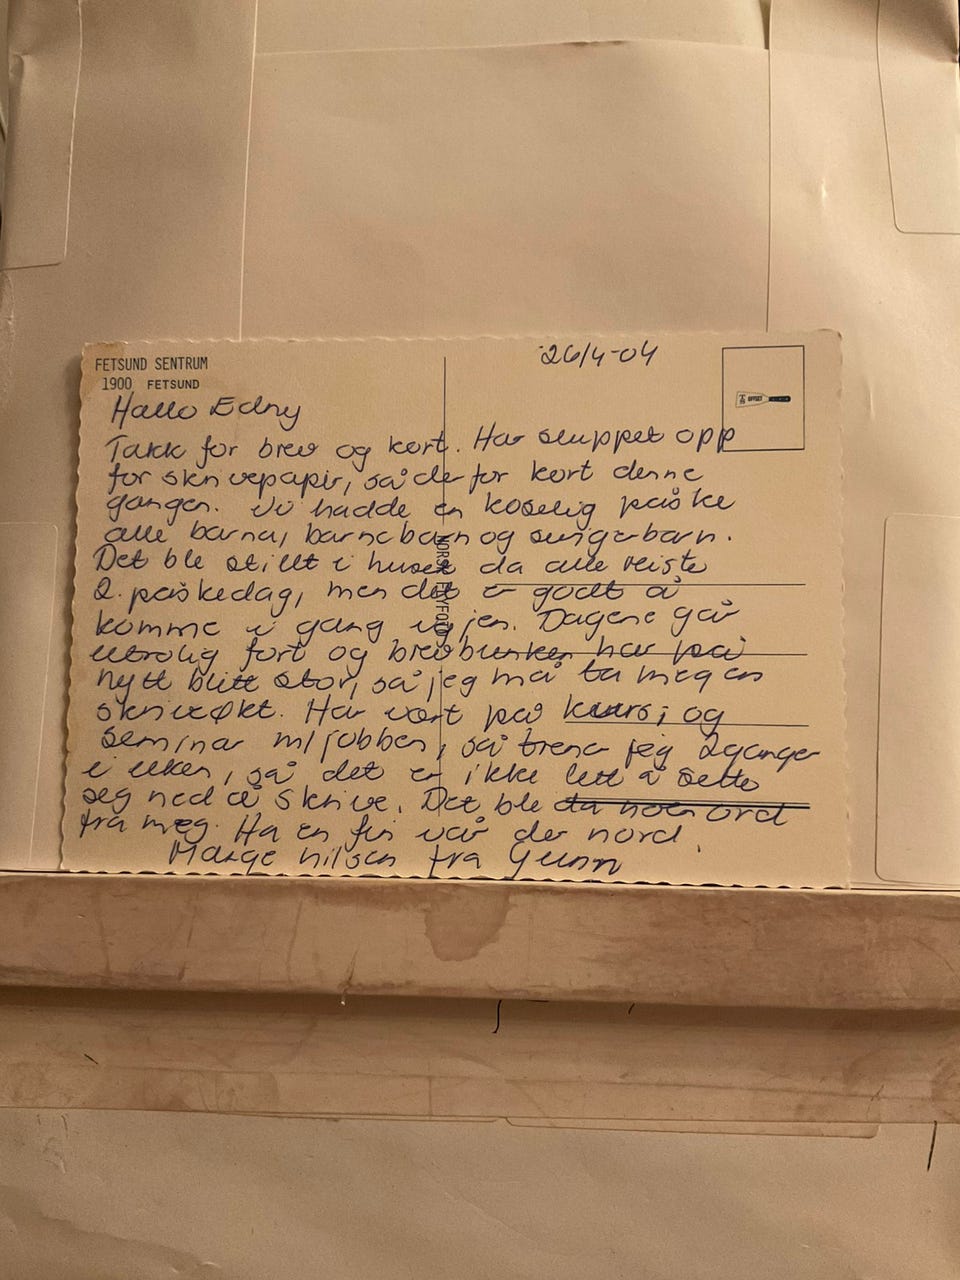 FETSUND SENTRUM
1900 FETSUND
26/4-04
OFFSET
NORSK
Hallo Edny
Takk for brev og kort. Har sluppet opp
for skrivepapir, så derfor kort denne
gangen. Vi hadde en koselig påske
alle barna, barnebarn og svigerbarn.
Det ble stillt i huset da alle reiste
2. påskedag, men det er godt å
komme i gang igjen. Dagene går
utrolig fort og brevbunken har på
nytt blitt stor, så jeg må ta meg en
skriveøkt. Har vært på kurs, og
seminar m/jobben, så trener jeg 2ganger
i uken, så det er ikke lett å sette
seg ned å skrive. Det ble da noen ord
fra meg. Ha en fin vår der nord.
Mange hilsen fra Gunn